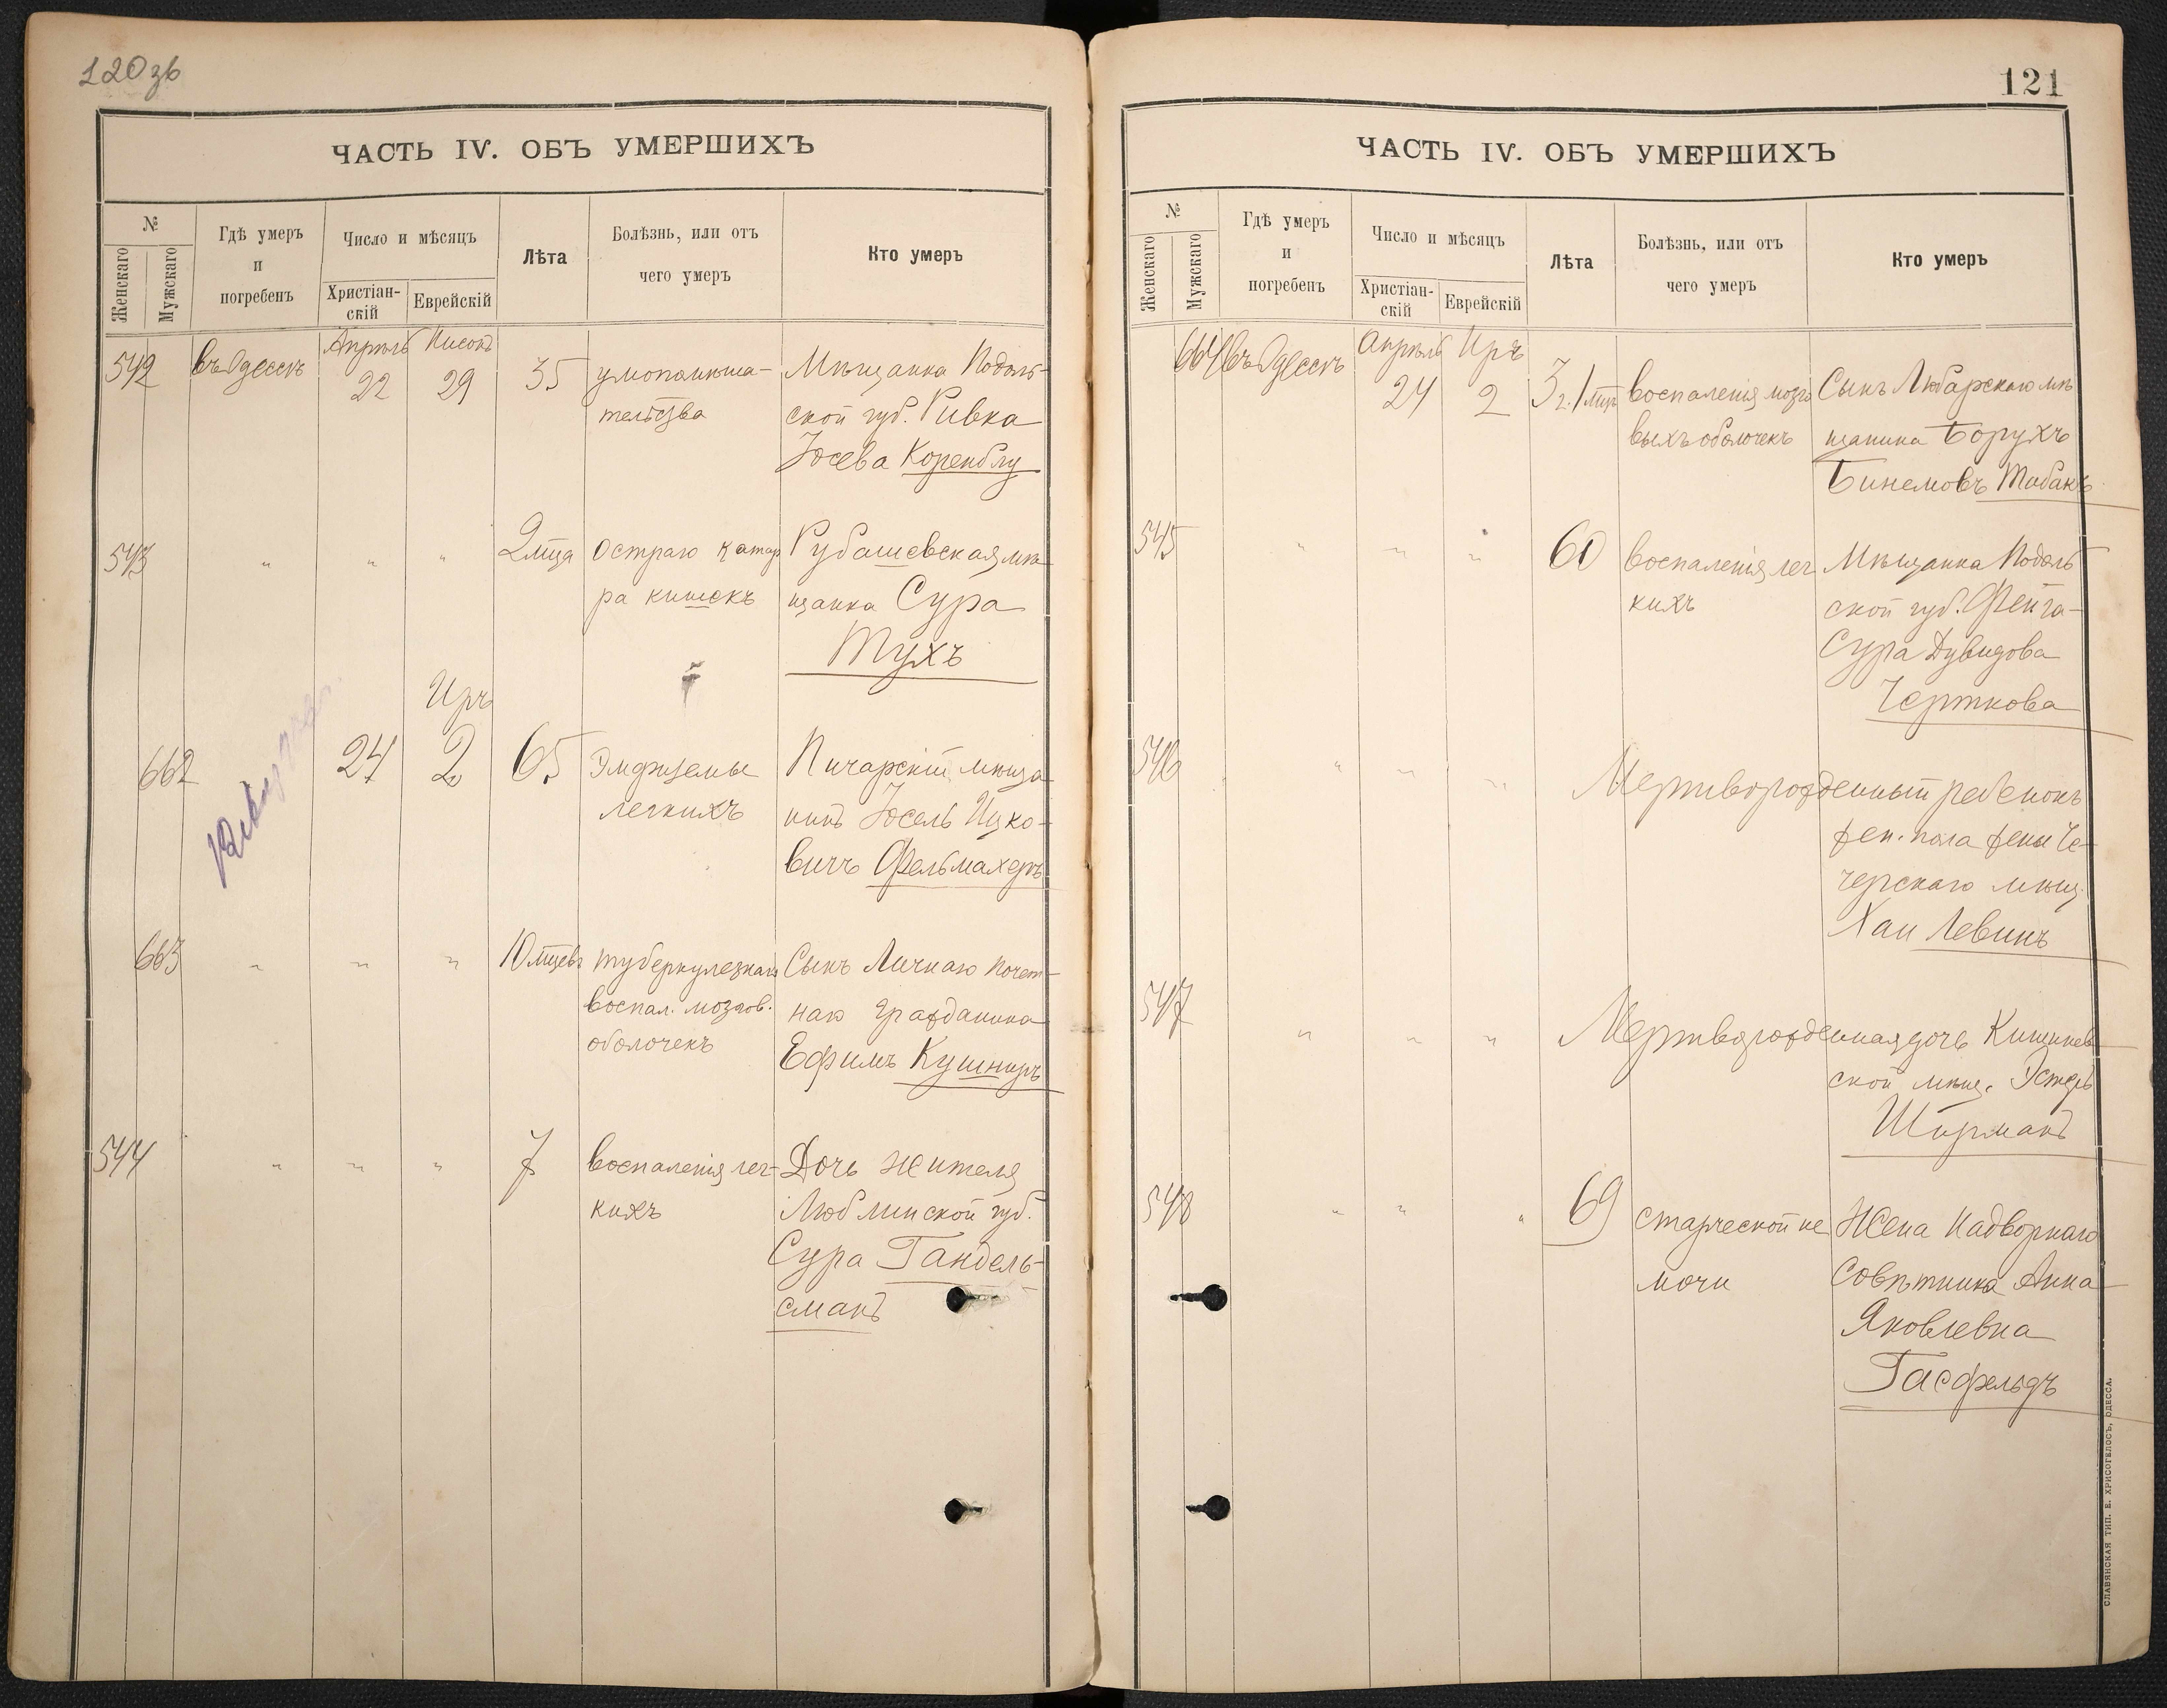 120 зв
ЧАСТЬ IV. ОБЪ УМЕРШИХЪ
№
Женскаго
Мужскаго
Гдѣ умеръ
и
погребенъ
Число и мѣсяцъ
Христіан-
скій
Еврейскій
Лѣта
Болѣзнь, или отъ
чего умеръ
Кто умеръ
542 въ Одессѣ Апрѣль 22 Нисонъ 29 35 умопомѣша- Мѣщанка Подоль-
тельства ской губ. Ривка
Іосева Коренблу
543 " " " 2 мца Остраго катар Рубашевская мѣ
ра кишекъ щанка Сура
Тухъ
Иръ
662 24 2 65 Эмфиземы Пичарскій мѣща
легкихъ нинъ Іосель Ицко-
вичъ Фельмахеръ
663 " " " 10 мцевъ туберкулезнаго Сынъ Личнаго почет-
воспал. мозгов. наго гражданина
оболочекъ Ефимъ Кушниръ
544 " " " 7 воспаленія лег- Дочь жителя
кихъ Люблинской губ.
Сура Гандель-
сманъ
121
ЧАСТЬ IV. ОБЪ УМЕРШИХЪ
№
Женскаго
Мужскаго
Гдѣ умеръ
и
погребенъ
Число и мѣсяцъ
Христіан-
скій
Еврейскій
Лѣта
Болѣзнь, или отъ
чего умеръ
Кто умеръ
664 въ Одессѣ Апрѣль 24 Иръ 2 3 г. 1 мцъ воспаленія мозго Сынъ Любарскаго мѣ
выхъ оболочекъ щанина Борухъ
Бинемовъ Табакъ
545 " " " 60 воспаленія лег Мѣщанка Подоль
кихъ ской губ. Фейга-
Сура Дувидова
Черткова
546 " " " Мертворожденный ребенокъ
жен. пола жены Че-
черскаго мѣщ.
Хаи Левинъ
547 " " " Мертворожденная дочь Кишинев
ской мѣщ. Эстеръ
Ширманъ
548 " " " 69 старческой не Жена Надворнаго
мочи Совѣтника Анна
Яковлевна
Гасфельдъ
СЛАВЯНСКАЯ ТИП. Е. ХРИСОГЕЛОСЪ, ОДЕССА.